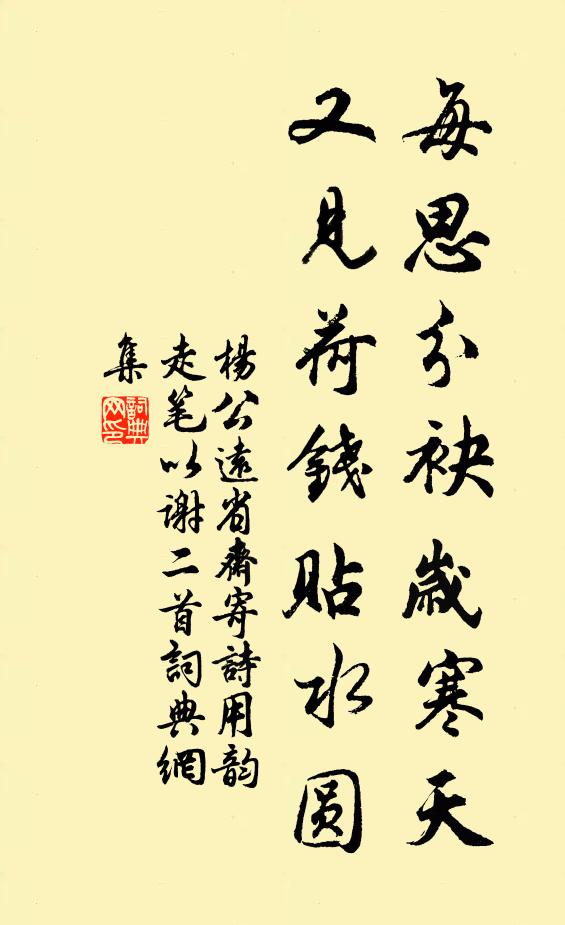 每思分袂歲寒天
又見荷錢貼水圓
楊公遠省齋寄詩用韵
走笔以謝二首詞典網
集
詞典网印